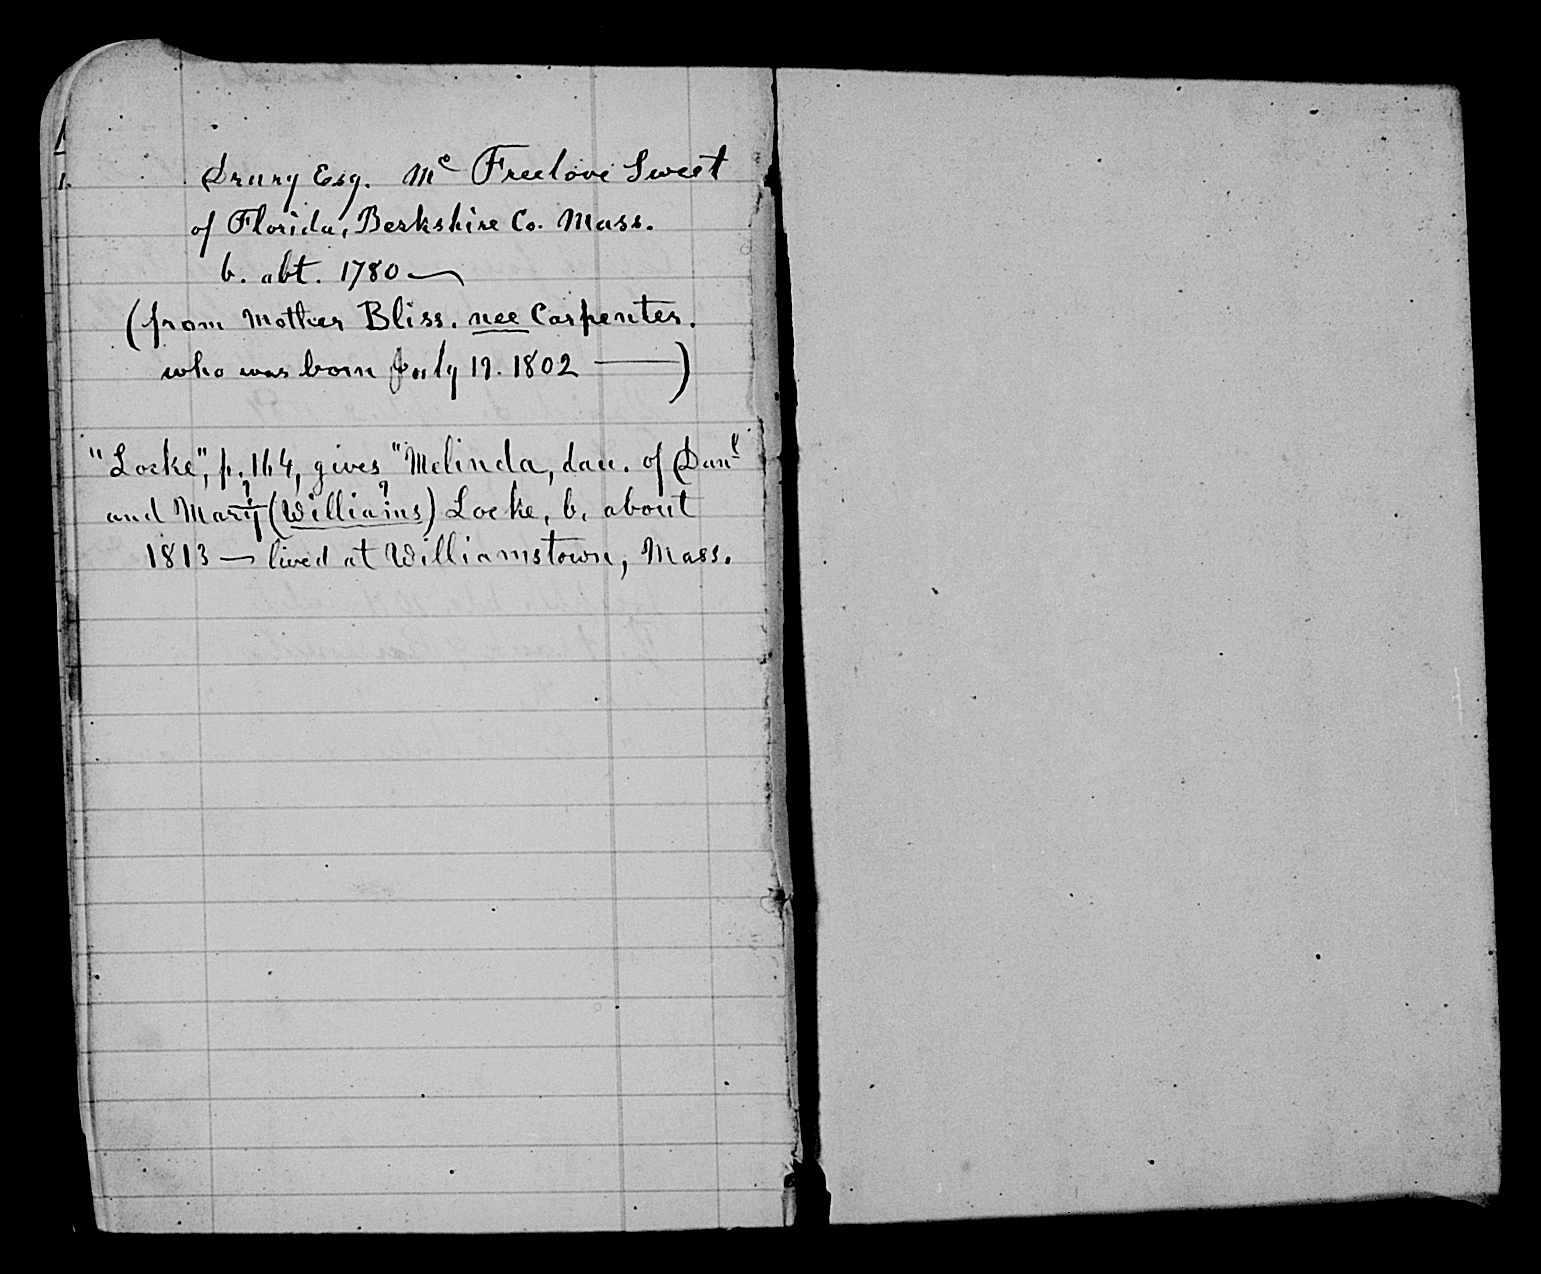 Drury Esq. Mᶜ Freelove Sweet
of Florida, Berkshire Co. Mass.
b. abt. 1780 —
(from Mother Bliss. nee Carpenter.
who was born July 19. 1802 —)
"Locke", p. 164, gives "Melinda, dau. of Danˡ
and Mary? (Williams?) Locke, b. about
1813 — lived at Williamstown, Mass.